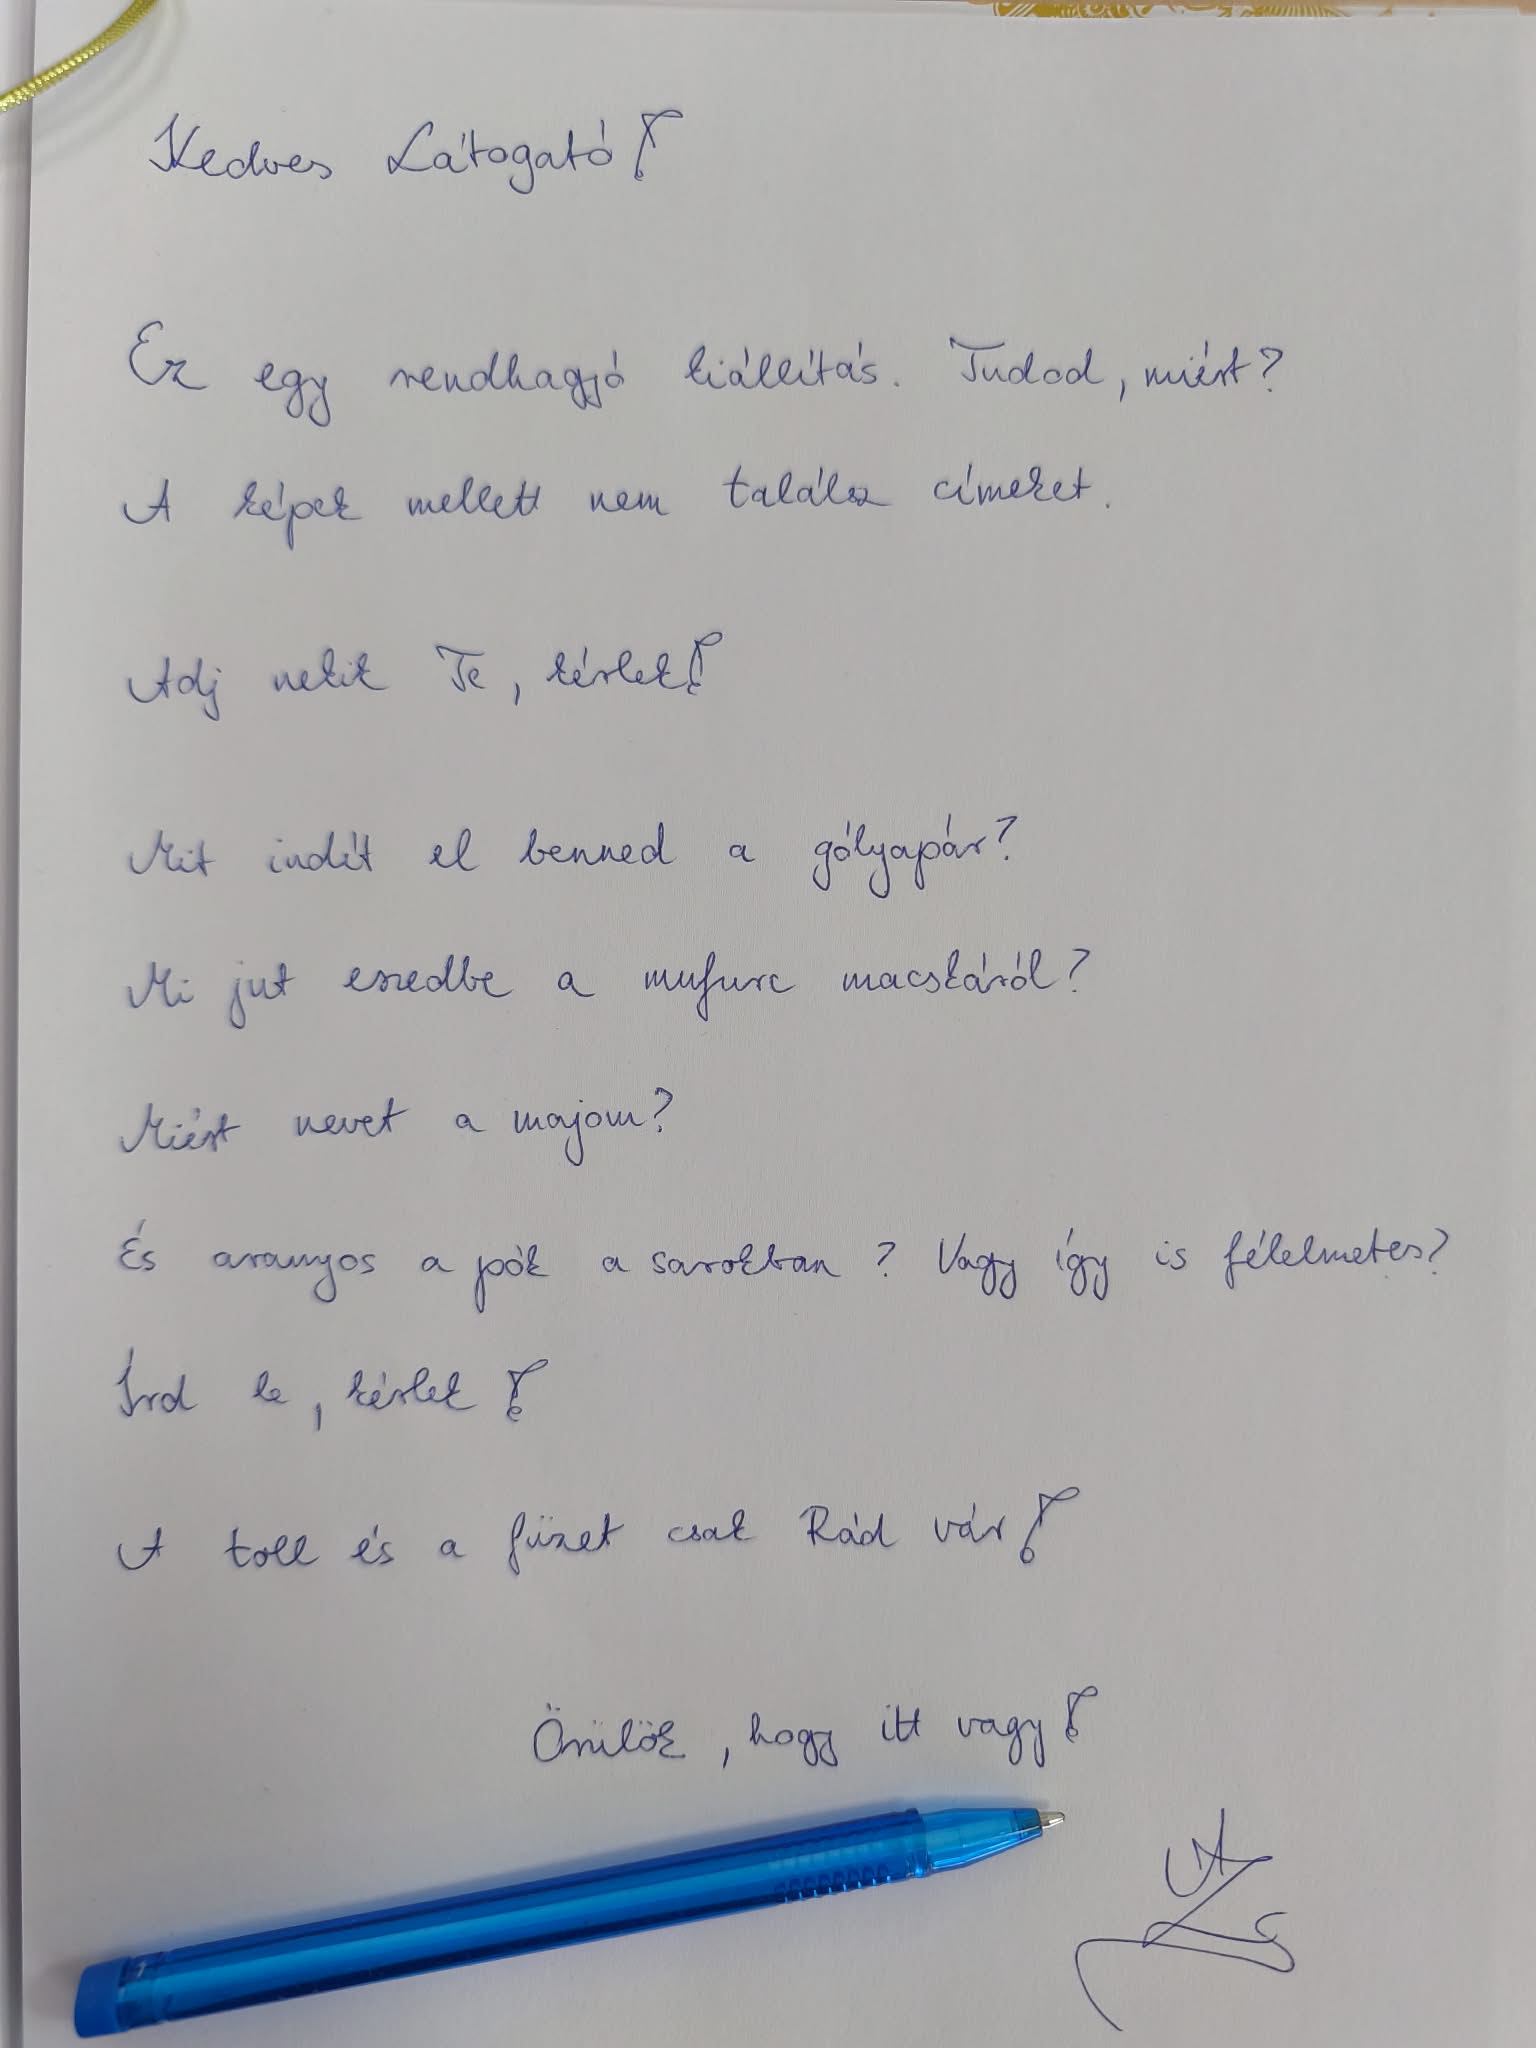 Kedves Látogató!
Ez egy rendhagyó kiállítás. Tudod, miért?
A képek mellett nem találsz címeket.
Adj nekik Te, kérlek!
Mit indít el benned a gólyapár?
Mi jut eszedbe a mufurc macskáról?
Miért nevet a majom?
És aranyos a pók a sarokban? Vagy így is félelmetes?
Írd le, kérlek!
A toll és a füzet csak Rád vár!
Örülök, hogy itt vagy!